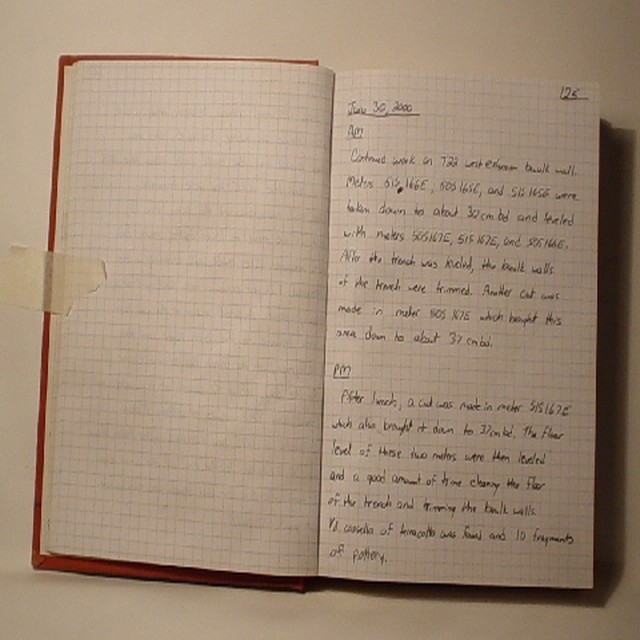 125
June 30, 2000
AM
Continued work on T22 western baulk wall.
Meters 51S 166E, 50S 165E, and 51S 165E were
taken down to about 32 cm bd and leveled
with meters 50S 167E, 51S 167E, and 50S 166E.
After the trench was leveled, the baulk walls
of the trench were trimmed. Another cut was
made in meter 50S 167E which brought this
area down to about 37 cm bd.
PM
After lunch, a cut was made in meter 51S 167E
which also brought it down to 37cm bd. The floor
level of these two meters were then leveled
and a good amount of time cleaning the floor
of the trench and trimming the baulk walls.
casella of terracotta was found and 10 fragments
of pottery.